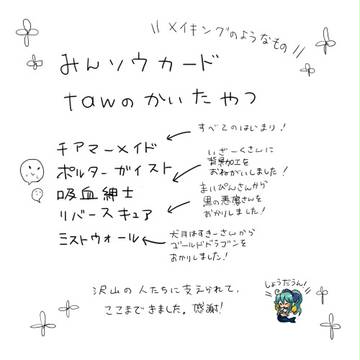 \\ メイキングのようなもの //
みんソウカード
tawのかいたやつ
チアマーメイド
すべてのはじまり!
ポルターガイスト
いざーくさんに
背景加工を
おねがいしました!
吸血紳士
まいぴんさんから
黒の悪魔さんを
おかりしました!
リバースキュア
ミストウォール
犬月はすきーさんから
ゴールドドラゴンを
おかりしました!
沢山の人たちに支えられて、
ここまできました。感謝!
しょうだうん!